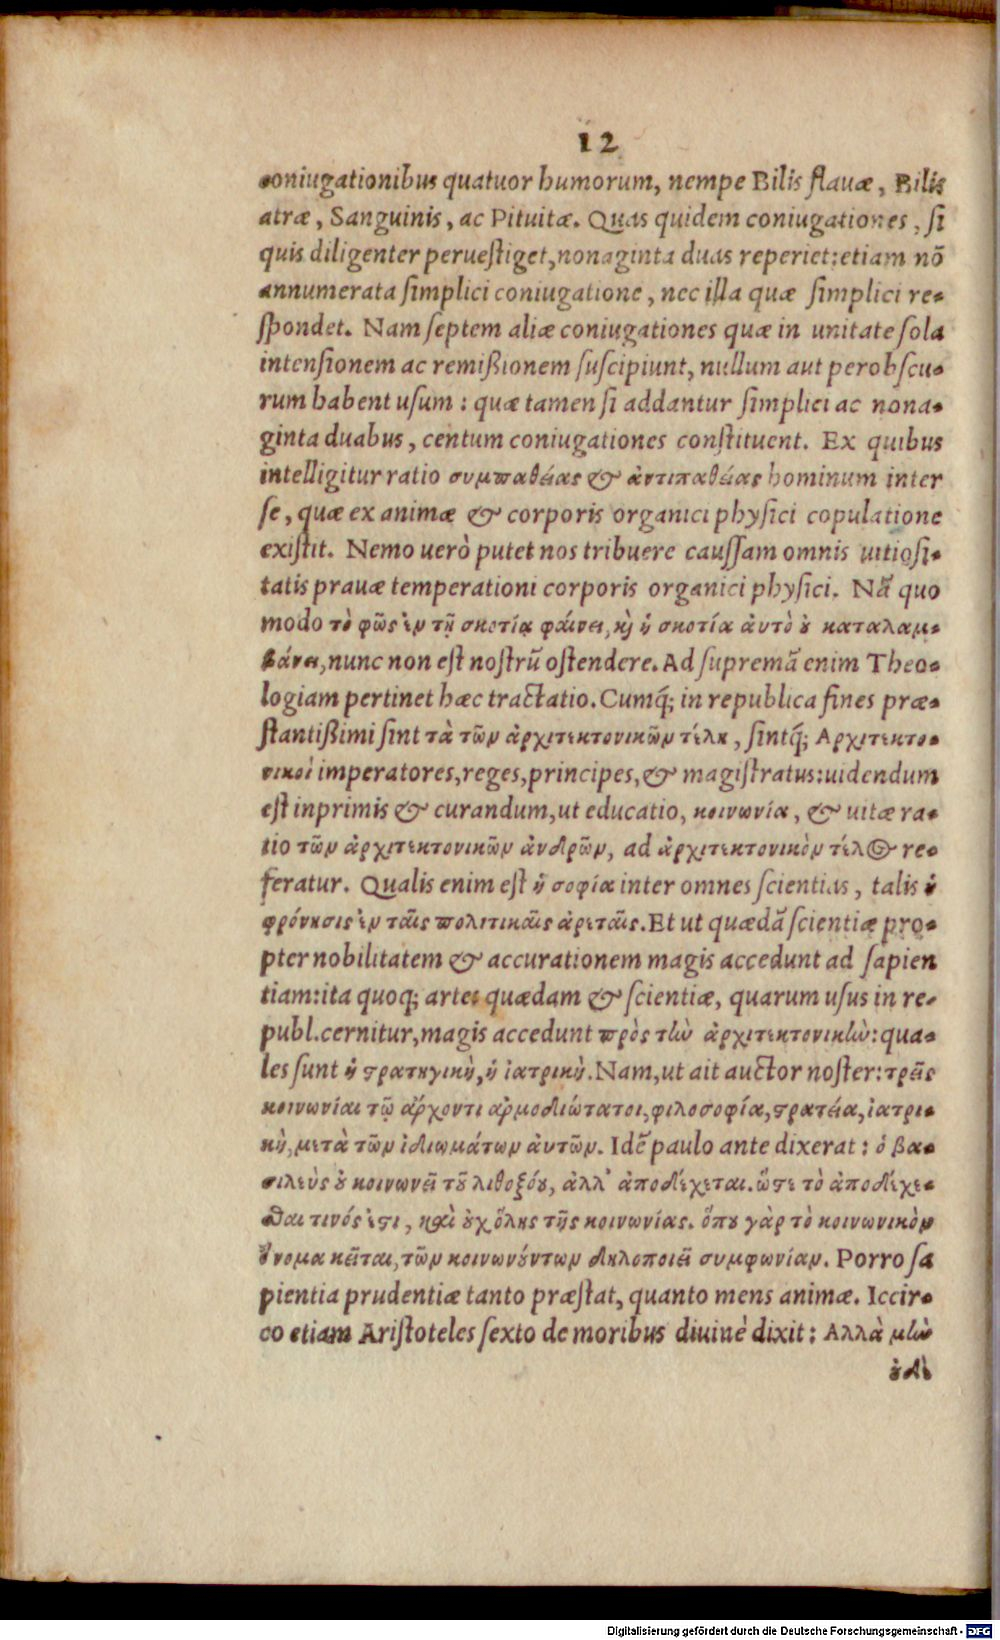 12
coniugationibus quatuor humorum, nempe Bilis flauæ, Bilis
atræ, Sanguinis, ac Pituitæ. Quas quidem coniugationes, ſi
quis diligenter perueſtiget, nonaginta duas reperiet: etiam nõ
annumerata ſimplici coniugatione, nec illa quæ ſimplici re-
ſpondet. Nam ſeptem aliæ coniugationes quæ in unitate ſola
intenſionem ac remißionem ſuſcipiunt, nullum aut perobſcu-
rum habent uſum: quæ tamen ſi addantur ſimplici ac nona-
ginta duabus, centum coniugationes conſtituent. Ex quibus
intelligitur ratio συμπαθείας & ἀντιπαθείας hominum inter
ſe, quæ ex animæ & corporis organici phyſici copulatione
exiſtit. Nemo uerò putet nos tribuere cauſſam omnis uitioſi-
tatis prauæ temperationi corporis organici phyſici. Nã quo
modo τὸ φῶς ἐν τῇ σκοτίᾳ φάινει, κ̀ ἡ σκοτία ἀυτὸ ὀυ καταλαμ-
βάνει, nunc non eſt noſtrũ oſtendere. Ad ſupremã enim Theo-
logiam pertinet hæc tractatio. Cumq́; in republica fines præ-
ſtantißimi ſint τὰ τῶν ἀρχιτεκτονικῶν τέλη, ſintq́; Αρχιτεκτο-
νικοὶ imperatores, reges, principes, & magiſtratus: uidendum
eſt inprimis & curandum, ut educatio, κοινωνία, & uitæ ra-
tio τῶν ἀρχιτεκτονικῶν ἀνδρῶν, ad ἀρχιτεκτονικὸν τέλος re-
feratur. Qualis enim eſt ἡ σοφία inter omnes ſcientias, talis ἡ
φρόνησις ἐν ταῖς πολιτικαῖς ἀρεταῖς. Et ut quædã ſcientiæ pro-
pter nobilitatem & accurationem magis accedunt ad ſapien
tiam: ita quoq; artes quædam & ſcientiæ, quarum uſus in re-
publ. cernitur, magis accedunt πρὸς τὴν ἀρχιτεκτονικὴν: qua-
les ſunt ἡ στρατηγικὴ, ἡ ἰατρικὴ. Nam, ut ait auctor noſter: τρεῖς
κοινωνίαι τῷ ἄρχοντι ἁρμοδιώτατοι, φιλοσοφία, στρατεία, ἰατρι-
κὴ, μετὰ τῶν ἰδιωμάτων ἀυτῶν. Idẽ paulo ante dixerat: ὁ βα-
σιλεὺς ὀυ κοινωνεῖ τοῦ λιθοξόου, ἀλλ' ἀποδέχεται. ὥστε τὸ ἀποδέχε-
σθαι τινός ἐστι, καὶ ὀυχ ὅλης τῆς κοινωνίας. ὅπου γὰρ τὸ κοινωνικὸν
ὄνομα κεῖται, τῶν κοινωνούντων δηλοποιεῖ συμφωνίαν. Porro ſa
pientia prudentiæ tanto præſtat, quanto mens animæ. Iccir-
co etiam Ariſtoteles ſexto de moribus diuinè dixit: Αλλὰ μὴν
ὀυδὲ
Digitalisierung gefördert durch die Deutsche Forschungsgemeinschaft - DFG